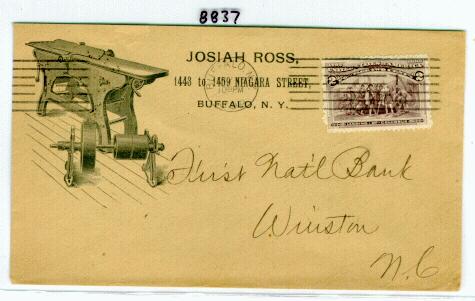 8837
JOSIAH ROSS,
1443 to 1459 NIAGARA STREET,
BUFFALO, N. Y.
First Nat'l Bank
Winston
N.C